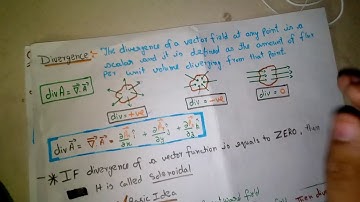 Divergence :- The divergence of a vector field at any point is a
scalar and it is defined as the amount of flux
per unit volume diverging from that point.
div A⃗ = ∇⃗.A⃗
div = +ve
div = -ve
div = 0
div A⃗ = ∇⃗.A⃗ =
* IF divergence of a vector function is equals to ZERO, then
it is called solenoidal
Basic Idea